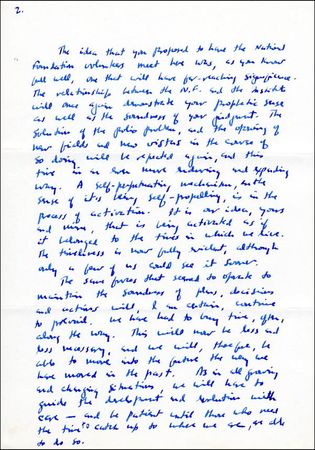 2.
The idea that you proposed to have the National
Foundation volunteers meet here was, as you know
full well, one that will have far-reaching significance.
The relationships between the N.F. and the Institute
will once again demonstrate your prophetic sense
as well as the soundness of your judgment. The
solution of the polio problem, and the opening of
new fields and new vistas in the course of
so doing will be repeated again, and this
time in an even more enduring and expanding
way. A self-perpetuating mechanism, in the
sense of its being self-propelling, is in the
process of activation. It is our idea, yours
and mine, that is being activated as if
it belonged to the times in which we live.
The timeliness is now fully evident, although
only a few of us could see it sooner.
The same forces that served to operate to
maintain the soundness of plans, decisions
and actions will, I am certain, continue
to prevail. We have had to buy time, often,
along the way. This will now be less and
less necessary, and we will, therefore, be
able to move into the future the way we
have moved in the past. As in all growing
and changing situations, we will have to
guide the development and evolution with
care — and be patient until those who need
the time to catch up to where we are, are able
to do so.